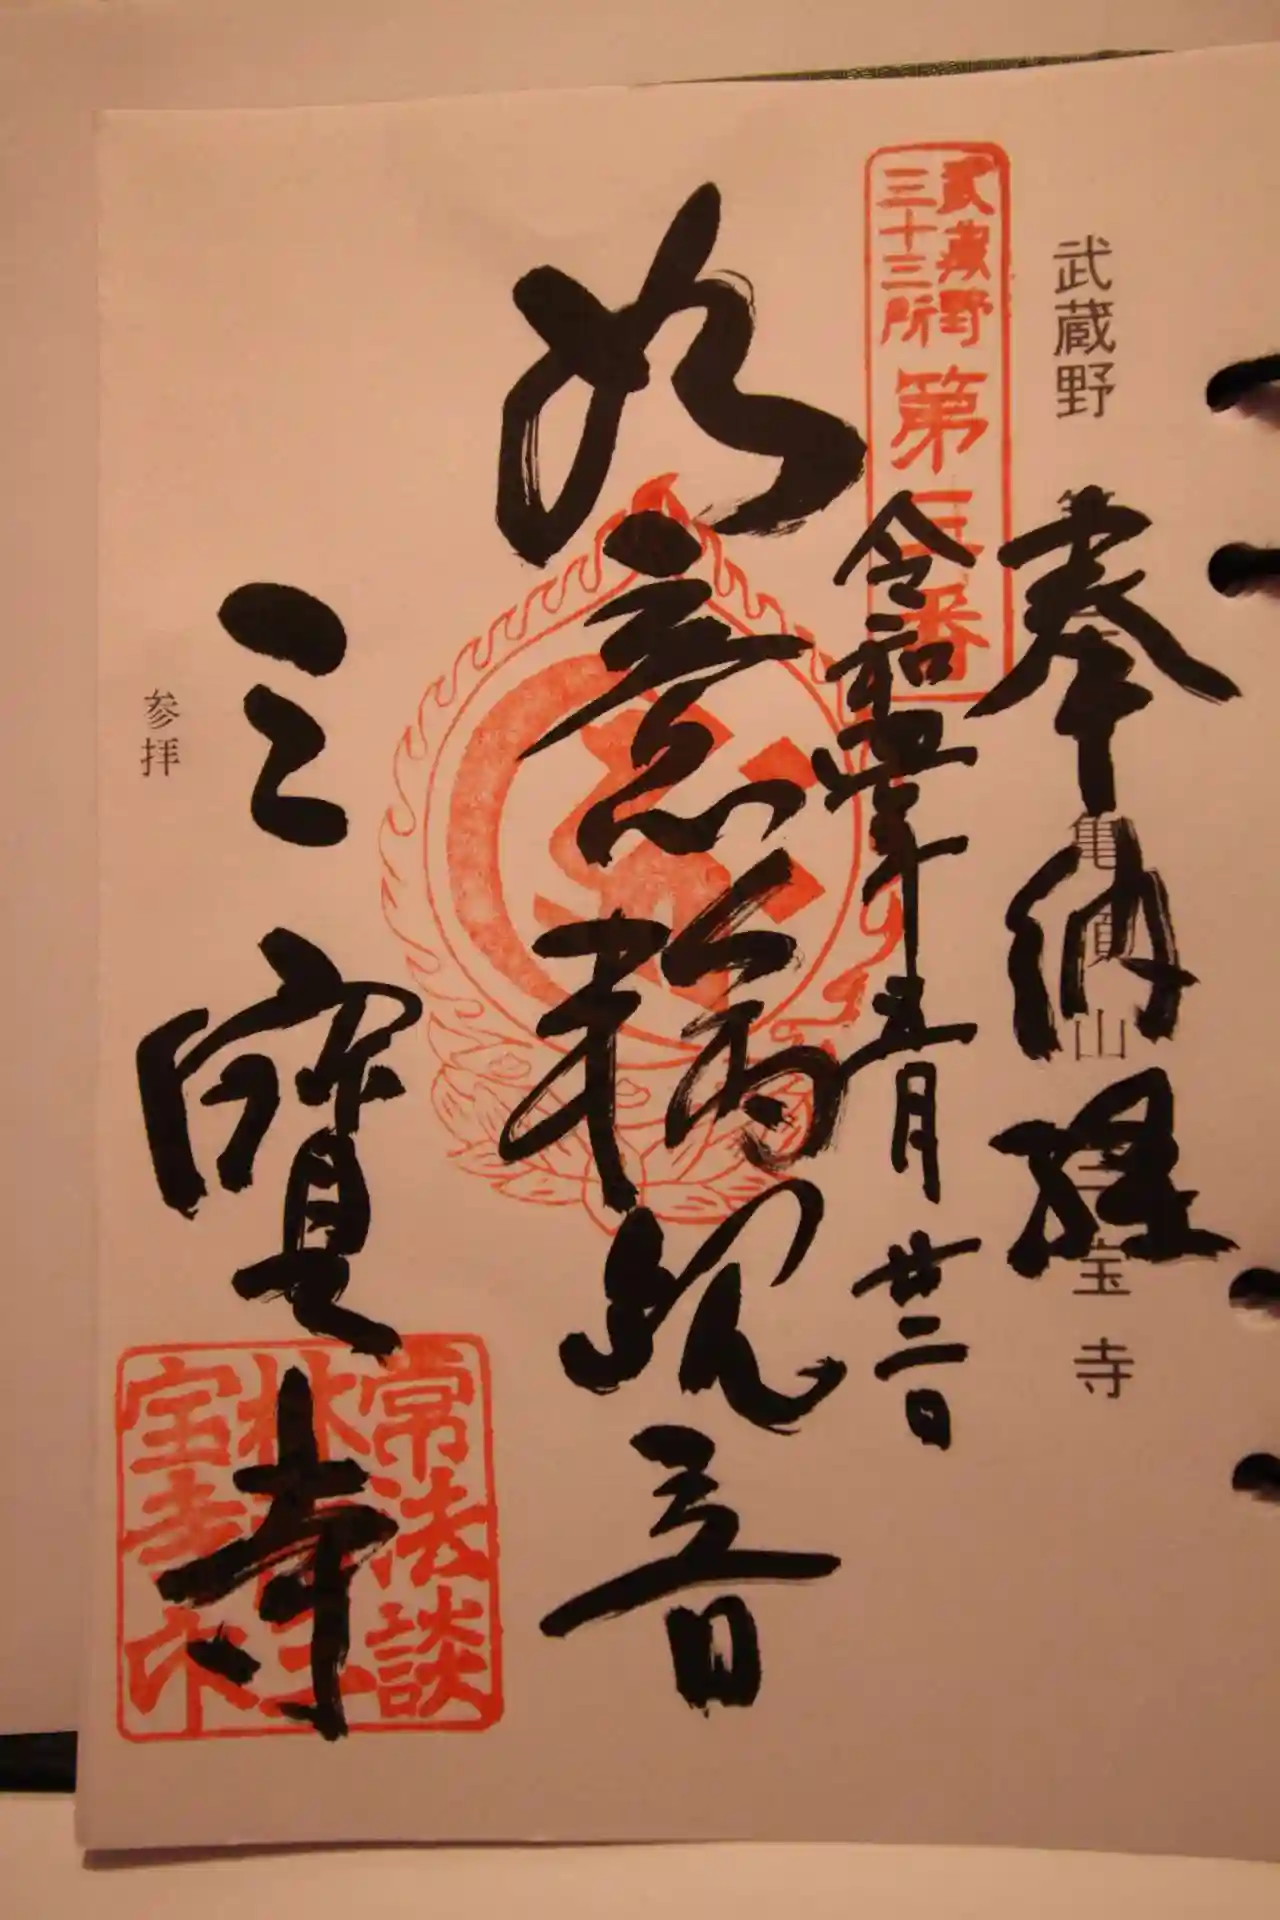 武蔵野
亀頂山
三宝寺
奉納経
武蔵野
三十三所
第三番
令和五年五月廿二日
如意輪観音
三寶寺
常法談
林
宝寺印
参拝